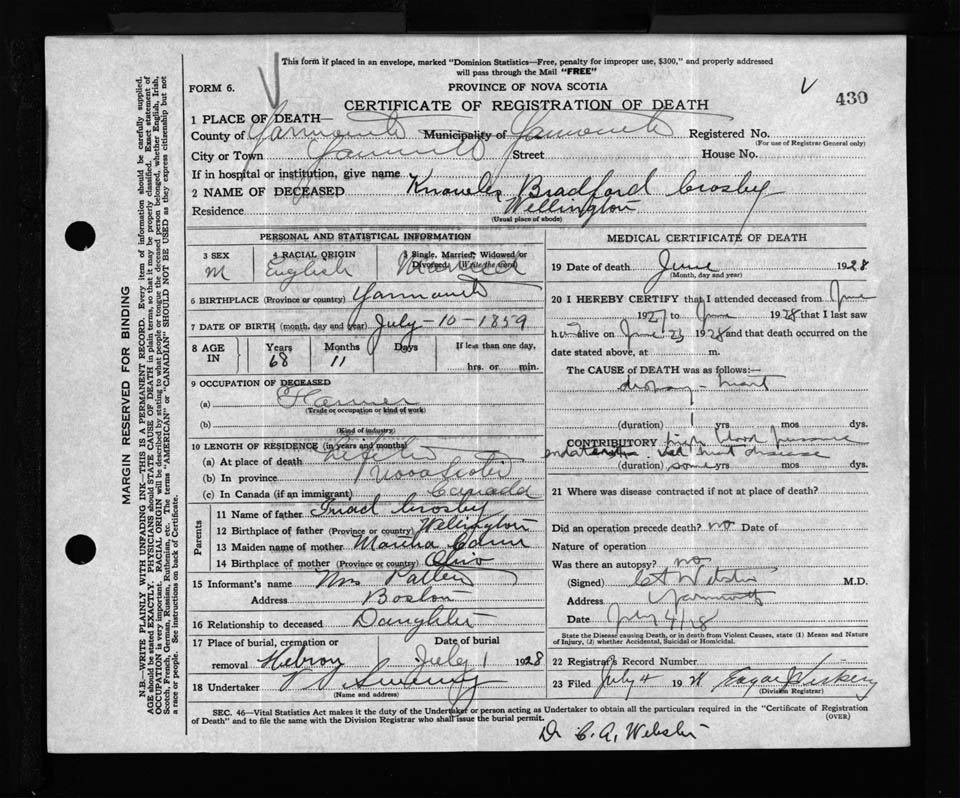 This form if placed in an envelope, marked "Dominion Statistics—Free, penalty for improper use, $300," and properly addressed
will pass through the Mail "FREE"
FORM 6.
PROVINCE OF NOVA SCOTIA
430
CERTIFICATE OF REGISTRATION OF DEATH
1 PLACE OF DEATH—
County of Yarmouth Municipality of Yarmouth Registered No.
(For use of Registrar General only)
City or Town Yarmouth Street House No.
If in hospital or institution, give name
2 NAME OF DECEASED Knowles Bradford Crosby
Residence Wellington
(Usual place of abode)
PERSONAL AND STATISTICAL INFORMATION
3 SEX 4 RACIAL ORIGIN 5 Single, Married, Widowed or Divorced. (Write the word)
M English
6 BIRTHPLACE (Province or country) Yarmouth
7 DATE OF BIRTH (month, day and year) July-10-1859
8 AGE IN Years Months Days If less than one day,
68 11 hrs. or min.
9 OCCUPATION OF DECEASED
(a) Farmer
(Trade or occupation or kind of work)
(b)
(Kind of industry)
10 LENGTH OF RESIDENCE (in years and months)
(a) At place of death Lifetime
(b) In province Nova Scotia
(c) In Canada (if an immigrant) Canada
Parents
11 Name of father Crosby
12 Birthplace of father (Province or country) Wellington
13 Maiden name of mother Martha Cann
14 Birthplace of mother (Province or country) Ohio
15 Informant's name Mrs Patten
Address Boston
16 Relationship to deceased Daughter
17 Place of burial, cremation or removal Hebron Date of burial July 1 1928
18 Undertaker Sweeny
(Name and address)
MEDICAL CERTIFICATE OF DEATH
19 Date of death June 1928
(Month, day and year)
20 I HEREBY CERTIFY that I attended deceased from June
1927 to June 1928 that I last saw
h im alive on June 23 1928 and that death occurred on the
date stated above, at m.
The CAUSE of DEATH was as follows:—
dropsy - heart
(duration) 1 yrs mos dys.
CONTRIBUTORY high blood pressure
heart disease
(duration) some yrs mos dys.
21 Where was disease contracted if not at place of death?
Did an operation precede death? no Date of
Nature of operation
Was there an autopsy? no
(Signed) C A Webster M.D.
Address Yarmouth
Date July 4/28
State the Disease causing Death, or in death from Violent Causes, state (1) Means and Nature
of Injury, (2) whether Accidental, Suicidal or Homicidal.
22 Registrar's Record Number
23 Filed July 4 1928 Edgar
(Division Registrar)
SEC. 46—Vital Statistics Act makes it the duty of the Undertaker or person acting as Undertaker to obtain all the particulars required in the "Certificate of Registration
of Death" and to file the same with the Division Registrar who shall issue the burial permit. (OVER)
Dr C. A. Webster
MARGIN RESERVED FOR BINDING
N.B.—WRITE PLAINLY WITH UNFADING INK—THIS IS A PERMANENT RECORD. Every item of information should be carefully supplied.
AGE should be stated EXACTLY. PHYSICIANS should STATE CAUSE OF DEATH in plain terms, so that it may be properly classified. Exact statement of
OCCUPATION is very important. RACIAL ORIGIN will be described by stating to what people or tongue the deceased person belonged, whether English, Irish,
Scotch, French, German, Russian, Ruthenian, etc. The terms "AMERICAN" or "CANADIAN" SHOULD NOT BE USED as they express citizenship but not
a race or people. See instructions on back of Certificate.